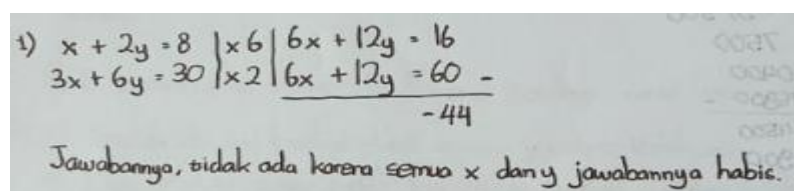 1) x + 2y = 8 | x 6 | 6x + 12y = 16
3x + 6y = 30 | x 2 | 6x + 12y = 60 -
-44
Jawabannya, tidak ada karena semua x dan y jawabannya habis.